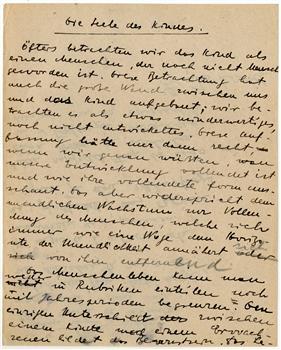 Die Seele des Kindes.
Öfters betrachten wir das Kind als
einen Menschen, der noch nicht Mensch
geworden ist. Diese Betrachtung hat
auch die große Wand zwischen uns
und das Kind aufgebaut; wir be-
trachten es als etwas minderwertiges,
noch nicht entwickeltes. Diese Auf-
fassung hätte nur dann recht,
wenn wir genau wüßten, wann
unsere Entwicklung vollendet ist
und wie ihre vollendete Form aus-
schaut. Das aber widerspricht dem
unendlichen Wachstum zur Vollen-
dung des Menschen, welche sich
immer wie eine Woge dem Horizo
nte der Unendlichkeit annähert oder
sich von ihm entfernt.
Das Menschenleben kann man
nicht in Rubriken einteilen noch
mit Jahresperioden begrenzen. Den
einzigen Unterschied zwischen
einem Kinde und einem Erwach-
senen bildet das Bewusstsein. Das